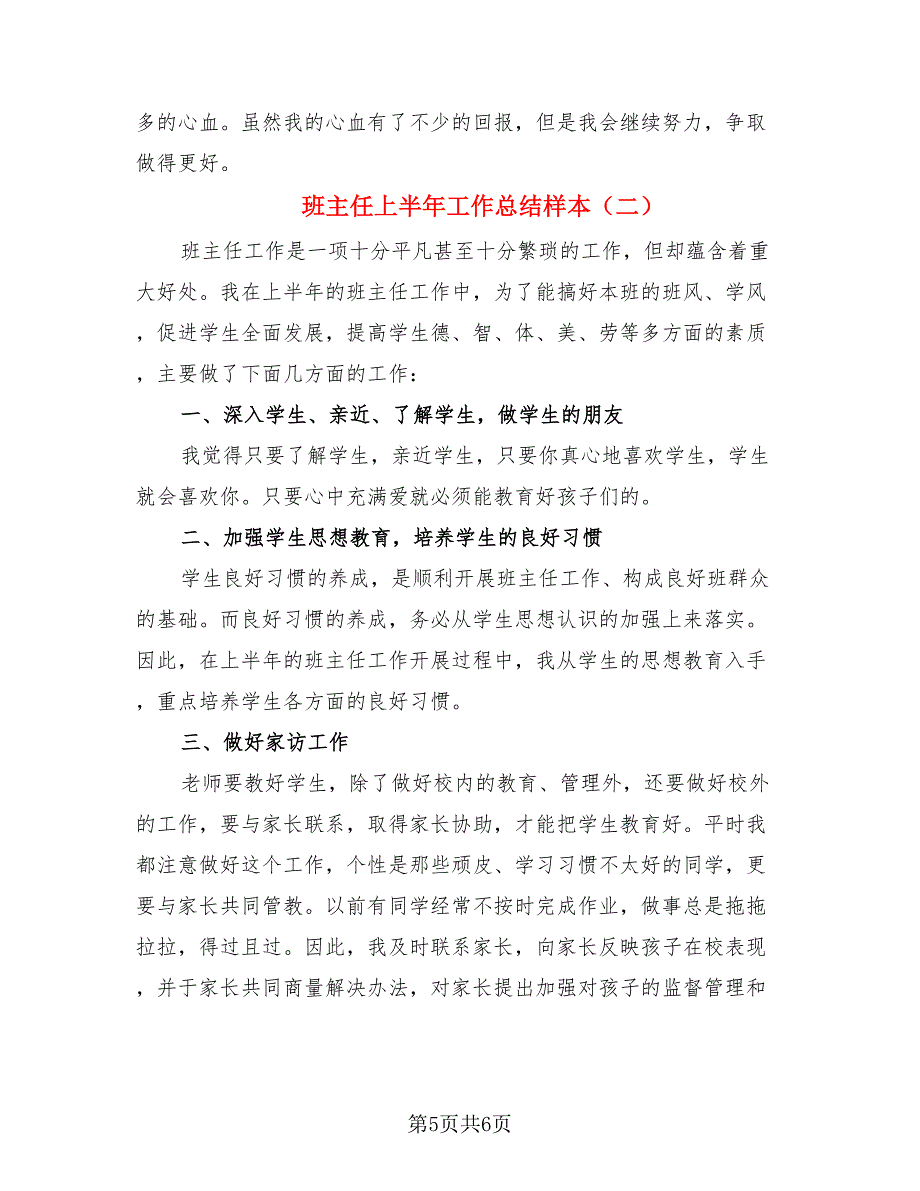 多的心血。虽然我的心血有了不少的回报，但是我会继续努力，争取
做得更好。
班主任上半年工作总结样本（二）
班主任工作是一项十分平凡甚至十分繁琐的工作，但却蕴含着重
大好处。我在上半年的班主任工作中，为了能搞好本班的班风、学风
，促进学生全面发展，提高学生德、智、体、美、劳等多方面的素质
，主要做了下面几方面的工作：
一、深入学生、亲近、了解学生，做学生的朋友
我觉得只要了解学生，亲近学生，只要你真心地喜欢学生，学生
就会喜欢你。只要心中充满爱就必须能教育好孩子们的。
二、加强学生思想教育，培养学生的良好习惯
学生良好习惯的养成，是顺利开展班主任工作、构成良好班群众
的基础。而良好习惯的养成，务必从学生思想认识的加强上来落实。
因此，在上半年的班主任工作开展过程中，我从学生的思想教育入手
，重点培养学生各方面的良好习惯。
三、做好家访工作
老师要教好学生，除了做好校内的教育、管理外，还要做好校外
的工作，要与家长联系，取得家长协助，才能把学生教育好。平时我
都注意做好这个工作，个性是那些顽皮、学习习惯不太好的同学，更
要与家长共同管教。以前有同学经常不按时完成作业，做事总是拖拖
拉拉，得过且过。因此，我及时联系家长，向家长反映孩子在校表现
，并于家长共同商量解决办法，对家长提出加强对孩子的监督管理和
第5页共6页